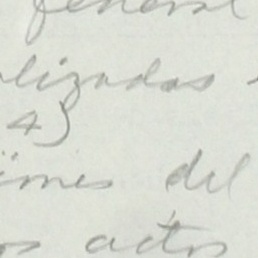 general
lizadas
4)
imes del
os actos